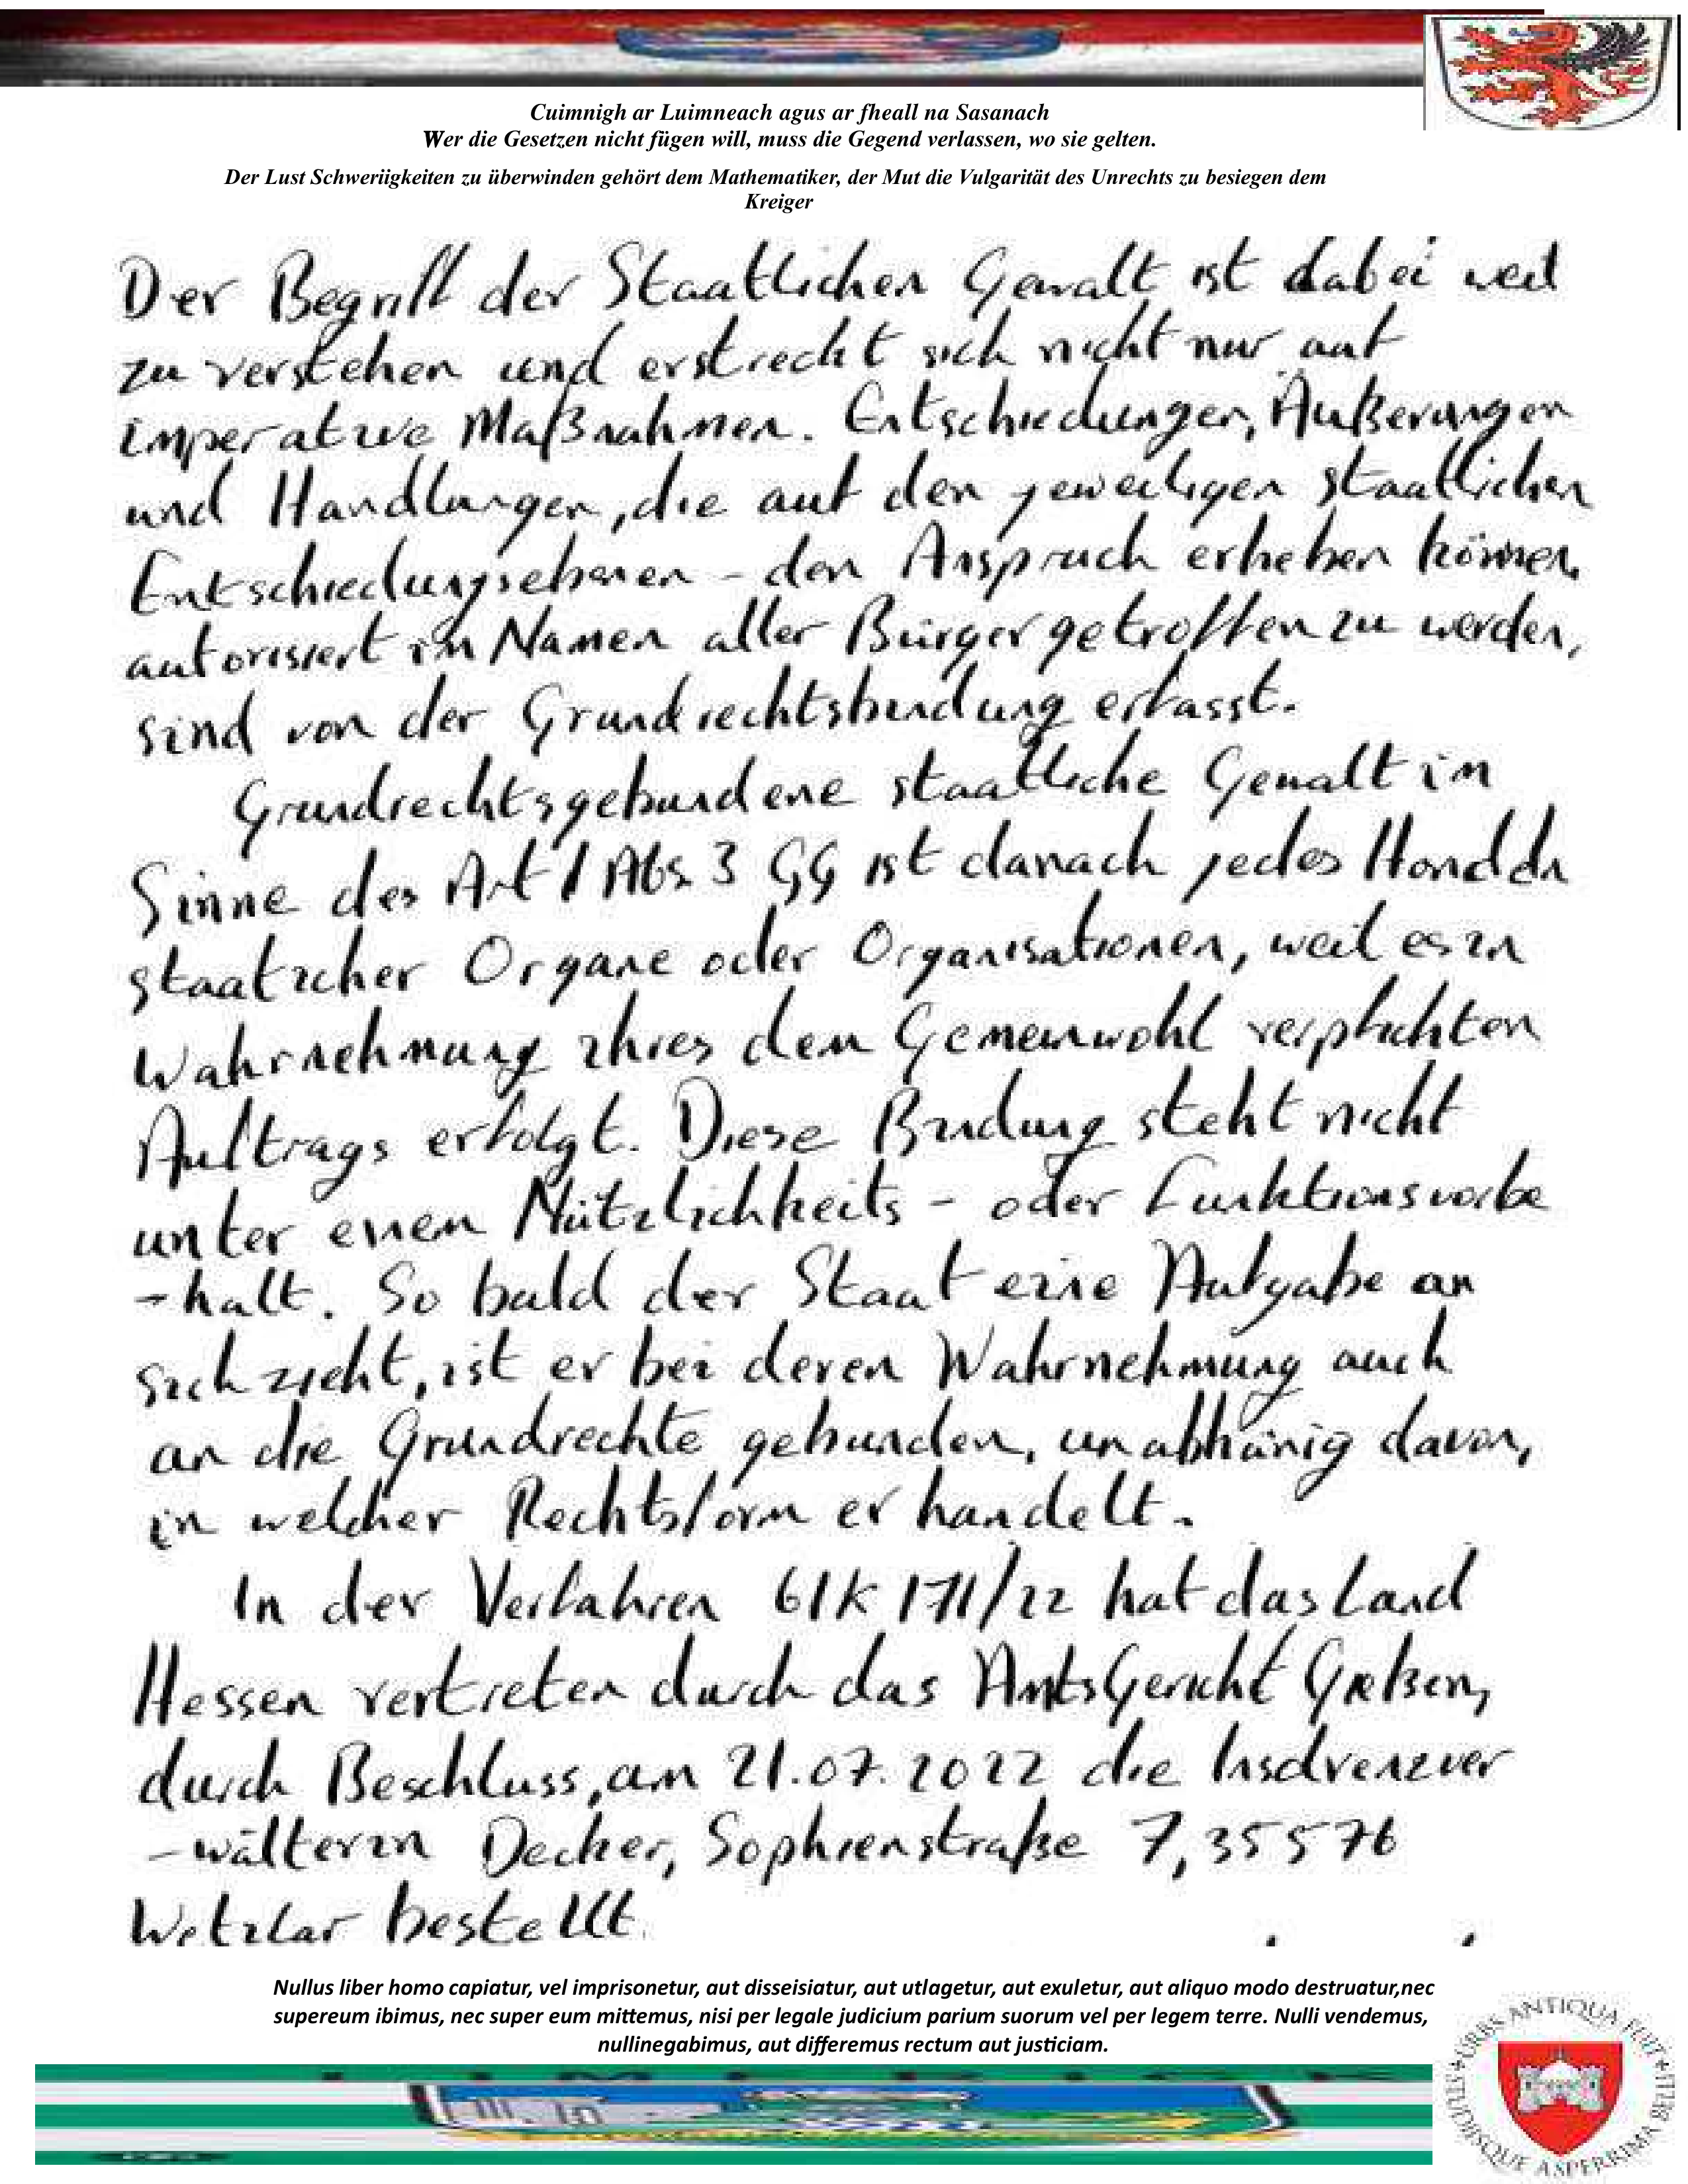 Cuimnigh ar Luimneach agus ar fheall na Sasanach
Wer die Gesetzen nicht fügen will, muss die Gegend verlassen, wo sie gelten.
Der Lust Schweriigkeiten zu überwinden gehört dem Mathematiker, der Mut die Vulgarität des Unrechts zu besiegen dem
Kreiger
Der Begriff der Staatlichen Gewalt ist dabei weit
zu verstehen und erstreckt sich nicht nur auf
imperative Maßnahmen. Entschiedungen, Äußerungen
und Handlungen, die auf den jeweiligen staatlichen
Entschiedungsebenen - den Anspruch erheben können,
autorisiert im Namen aller Bürger getroffen zu werden,
sind von der Grundrechtsbindung erfasst.
Grundrechtsgebundene staatliche Gewalt im
Sinne des Art 1 Abs 3 GG ist danach jedes
staaticher Organe oder Organisationen, weil es in
Wahrnehmung ihres dem Gemeinwohl verpflichten
Auftrags erfolgt. Diese Bindung steht nicht
unter einem Nützlichkeits - oder Funktionsvorbe
-halt. So bald der Staat eine Aufgabe an
sich zieht, ist er bei deren Wahrnehmung auch
an die Grundrechte gebunden, unabhänig davon,
in welcher Rechtsform er handelt.
In der Verfahren 61K 171/22 hat das Land
Hessen vertreten durch das AmtsGericht Gießen,
durch Beschluss, am 21.07.2022 die Insolvenzver
-wälterin Decker, Sophienstraße 7, 35576
Wetzlar bestellt.
Nullus liber homo capiatur, vel imprisonetur, aut disseisiatur, aut utlagetur, aut exuletur, aut aliquo modo destruatur,nec
supereum ibimus, nec super eum mittemus, nisi per legale judicium parium suorum vel per legem terre. Nulli vendemus,
nullinegabimus, aut differemus rectum aut justiciam.
URBS ANTIQUA FUIT STUDIISQUE ASPERRIMA BELLI